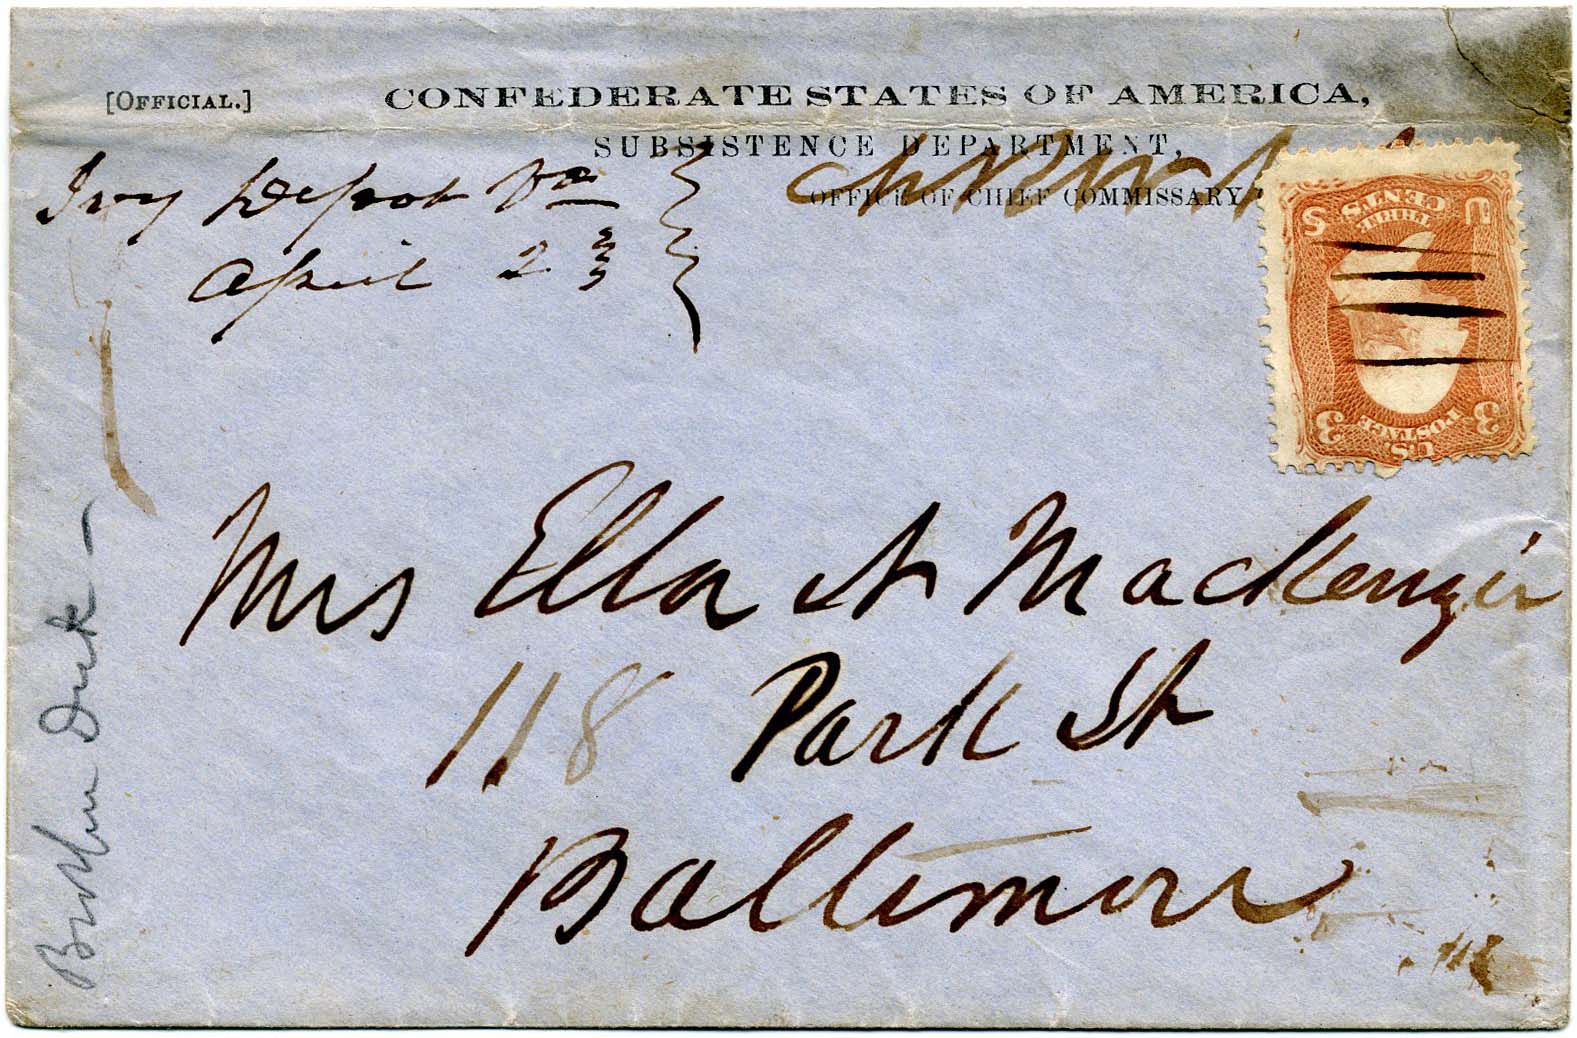 [OFFICIAL.]
CONFEDERATE STATES OF AMERICA,
SUBSISTENCE DEPARTMENT,
OFFICE OF CHIEF COMMISSARY
Ivy Depot Va
April 2
U S
THREE
CENTS
3 3
U.S.
POSTAGE
Mrs Ella N Mackenzie
118 Park St
Baltimore
Brother Dick –
118